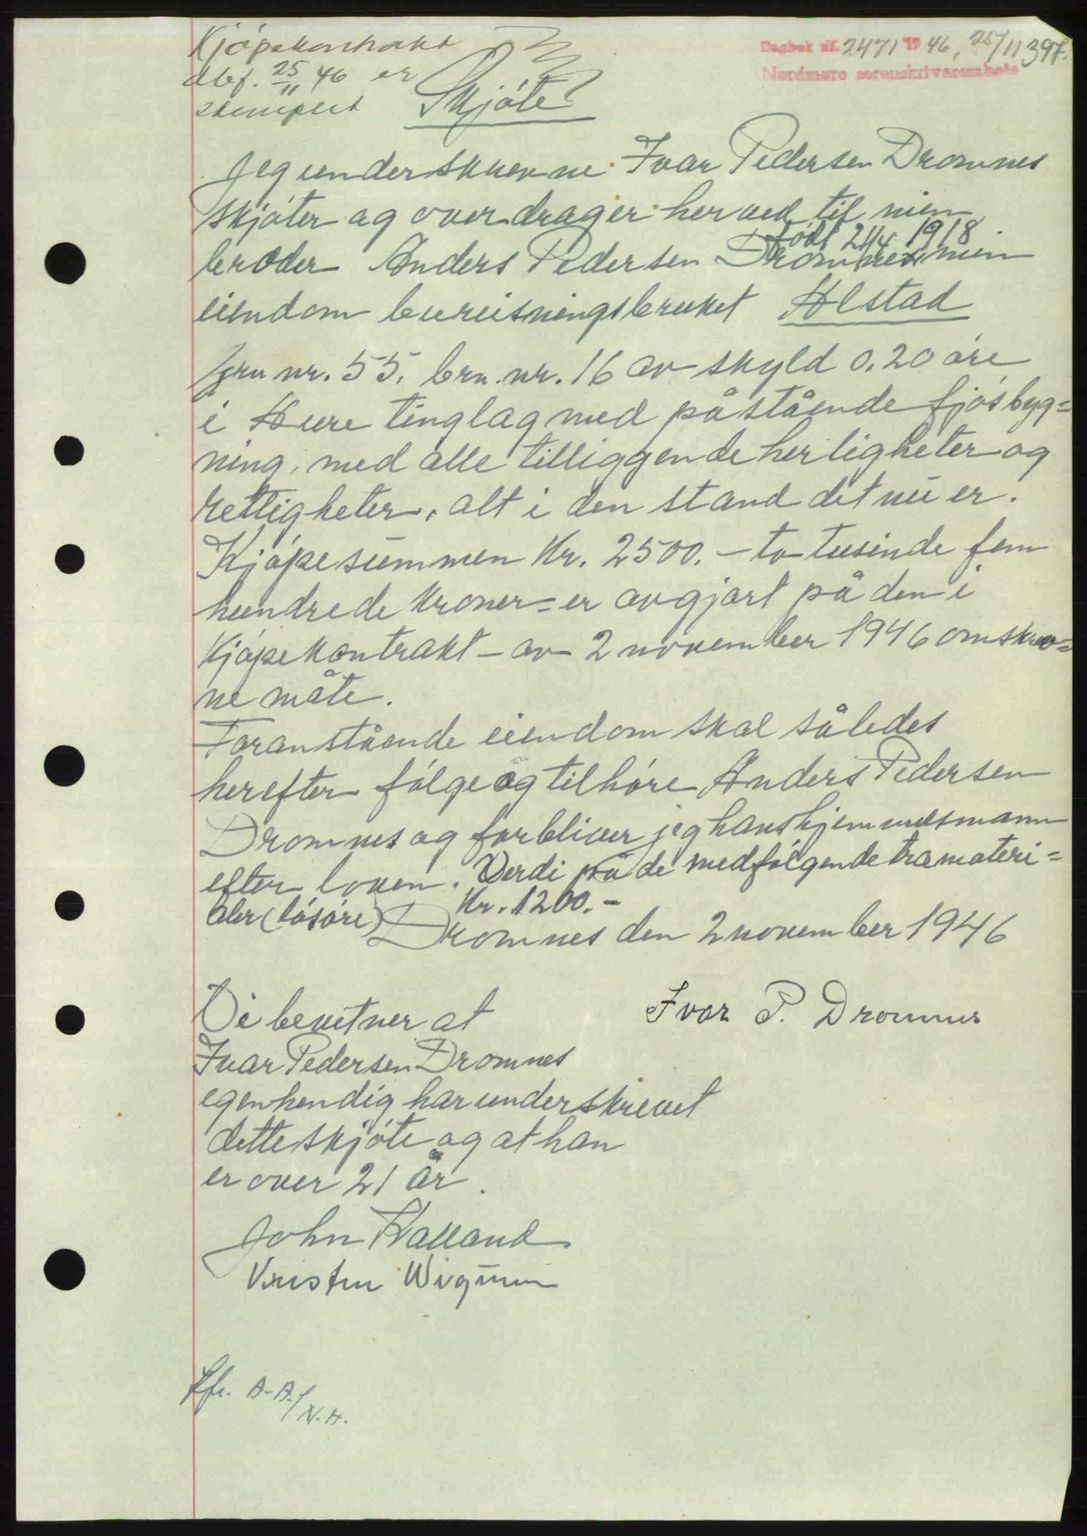 Kjøpekontrakt
dbf. 25/11 46 er
stemplet
Dagbok nr. 2471 1946, 25/11 397.
Nordmøre sorenskriverembete
Skjøte
Jeg underskrevne Ivar Pedersen Dromnes
skjøter og overdrager herved til min
født 21/4 1918
broder Anders Pedersen Dromnes min
eiendom bureisningsbruket Alstad
gru nr. 55, bru. nr. 16 av skyld 0,20 øre
i Aure tinglag med påstående fjøsbyg=
ning, med alle tilliggende herligheter og
rettigheter, alt i den stand det nu er.
Kjøpesummen Kr. 2500.- to tusinde fem
hundrede kroner= er avgjort på den i
Kjøpekontrakt - av 2 november 1946 omskrev=
ne måte.
Foranstående eiendom skal således
herefter følge og tilhøre Anders Pedersen
Dromnes og forbliver jeg hans hjemmelsmann
efter loven. Verdi på de medfølgende tramateri=
aler (løsøre) Kr. 1200.-
Dromnes den 2 november 1946
Ivar P. Dromnes
Vi bevitner at
Ivar Pedersen Dromnes
egenhendig har underskrevet
dette skjøte og at han
er over 21 år.
John Halland
Kristen Wigum
Jfr. A-A./
N.H.